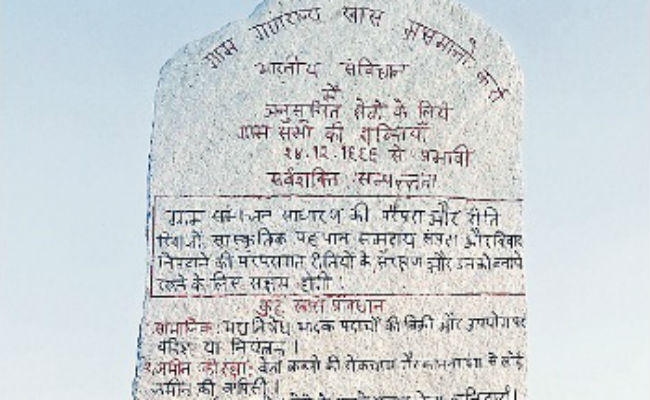 ग्राम गणराज्य खास
भारतीय संविधान
में
अनुसूचित क्षेत्रों के लिये
ग्राम सभा की शक्तियाँ
२४.१२.१९९६ से प्रभावी
सर्वशक्ति सम्पन्नता
ग्राम सभा जन साधारण की परंपरा और रीति
रिवाजों, सांस्कृतिक पहचान समुदाय संपदा और विवाद
निपटाने की परंपरागत रीतियों के संरक्षण और उनको बनाये
रखने के लिए सक्षम होगी।
कुछ खास प्रावधान
सामाजिक: मद्य निषेध, मादक पदार्थों की बिक्री और उपयोग पर
बंदिश या नियंत्रण।
जमीन की रक्षा: बेजा कब्जों की रोकथाम और
जमीन की वापिसी।